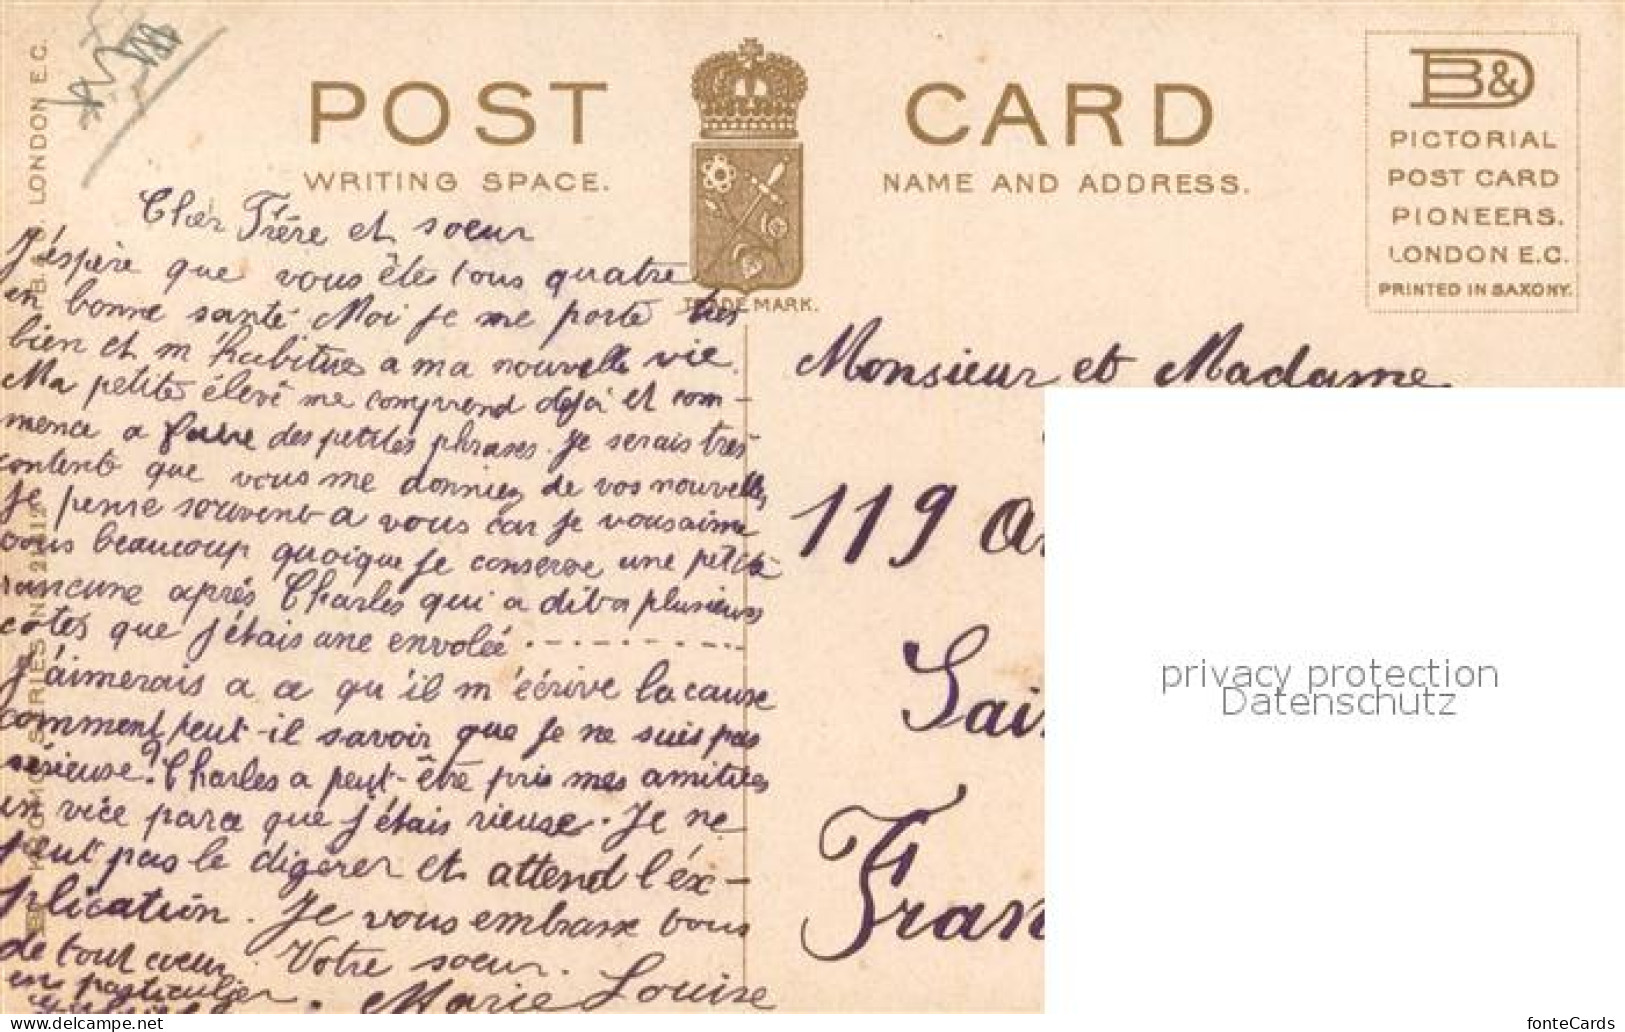 POST CARD
WRITING SPACE.
NAME AND ADDRESS.
TRADE MARK.
B&D
PICTORIAL
POST CARD
PIONEERS.
LONDON E.C.
PRINTED IN SAXONY.
LONDON E.C.
SERIES
Cher Frère et soeur
J'éspère que vous ête tous quatre
en bonne santé Moi je me porte tres
bien et m'habitue a ma nouvelle vie.
Ma petite élevé me comprend dejà et com-
mence a faire des petites phrases. Je serais tres
contente que vous me donniez de vos nouvelles
Je pense souvent a vous car je vous aime
tous beaucoup quoique je conserve une petite
rancune aprés Charles qui a dit a plusieurs
côtés que j'étais une envolée . - . - . - . - .
J'aimerais a ce qu'il m'écrive la cause
comment peut-il savoir que je ne suis pas
sérieuse? Charles a peut-être pris mes amitiés
en vice parce que j'étais rieuse. Je ne
peut pas le digérer et attend l'éx-
plication. Je vous embrasse tous
de tout coeur. Votre soeur.
en particulier
Marie Louise
Monsieur et Madame
119
Sai
Fran
privacy protection
Datenschutz
www.delcampe.net
fonteCards